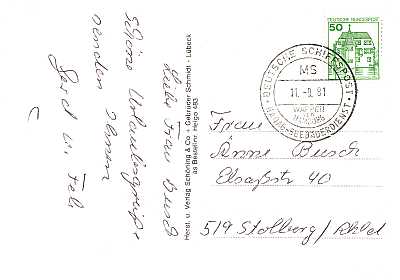 Liebe Frau Busch
Schöne Urlaubsgrüße
senden Ihnen
Gerd u. Feli
Herst. u. Verlag Schöning & Co · Gebrüder Schmidt · Lübeck
Bestellnr. Helgo 483
DEUTSCHE BUNDESPOST
50
DEUTSCHE SCHIFFSPOST
MS
11.-9.81
WAPPEN
VON
HAMBURG
SEEBÄDERDIENST
Frau
Anne Busch
Elsaßstr 40
519 Stolberg/Rhld